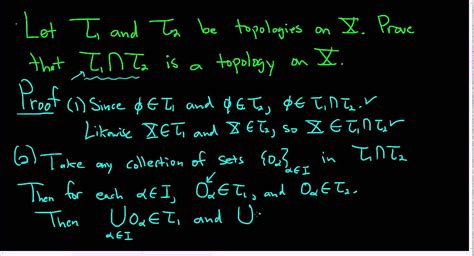 Let τ₁ and τ₂ be topologies on X. Prove
that τ₁∩τ₂ is a topology on X.
Proof (1) Since ∅∈τ₁ and ∅∈τ₂, ∅∈τ₁∩τ₂.✓
Likewise X∈τ₁ and X∈τ₂, so X∈τ₁∩τ₂✓
(2) Take any collection of sets {Oα}α∈I in τ₁∩τ₂
Then for each α∈I, Oα∈τ₁, and Oα∈τ₂.
Then ⋃α∈I Oα∈τ₁ and ⋃